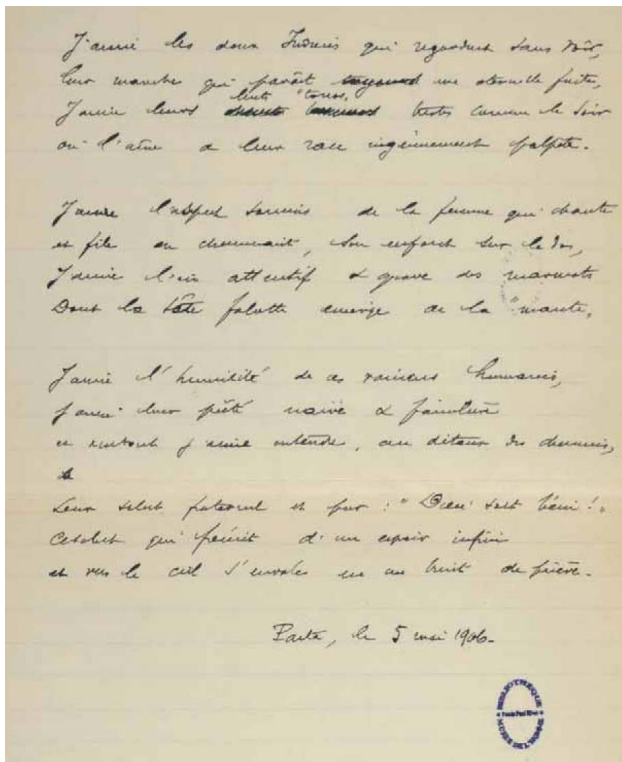 J'aime les doux Indiens qui regardent sans voir,
leur marche qui paraît une éternelle fuite,
lents "tonos"
J'aime leurs tristes comme le soir
où l'âme de leur race ingénuement palpite.
J'aime l'aspect soumis de la femme qui chante
et file en cheminant, son enfant sur le dos,
J'aime l'air attentif & grave des marmots
Dont la tête falotte émerge de la "mante".
J'aime l'humilité de ces vaincus humains,
j'aime leur piété naïve & familière
et surtout j'aime entendre, au détour des chemins,
Leur salut paternel et pur : "Dieu soit béni !"
Ce salut qui frémit d'un espoir infini
et vers le ciel s'envole en un bruit de prière.
le 5 mai 1906.
BIBLIOTHEQUE
Fonds Paul Rivet
MUSEE DE L'HOMME